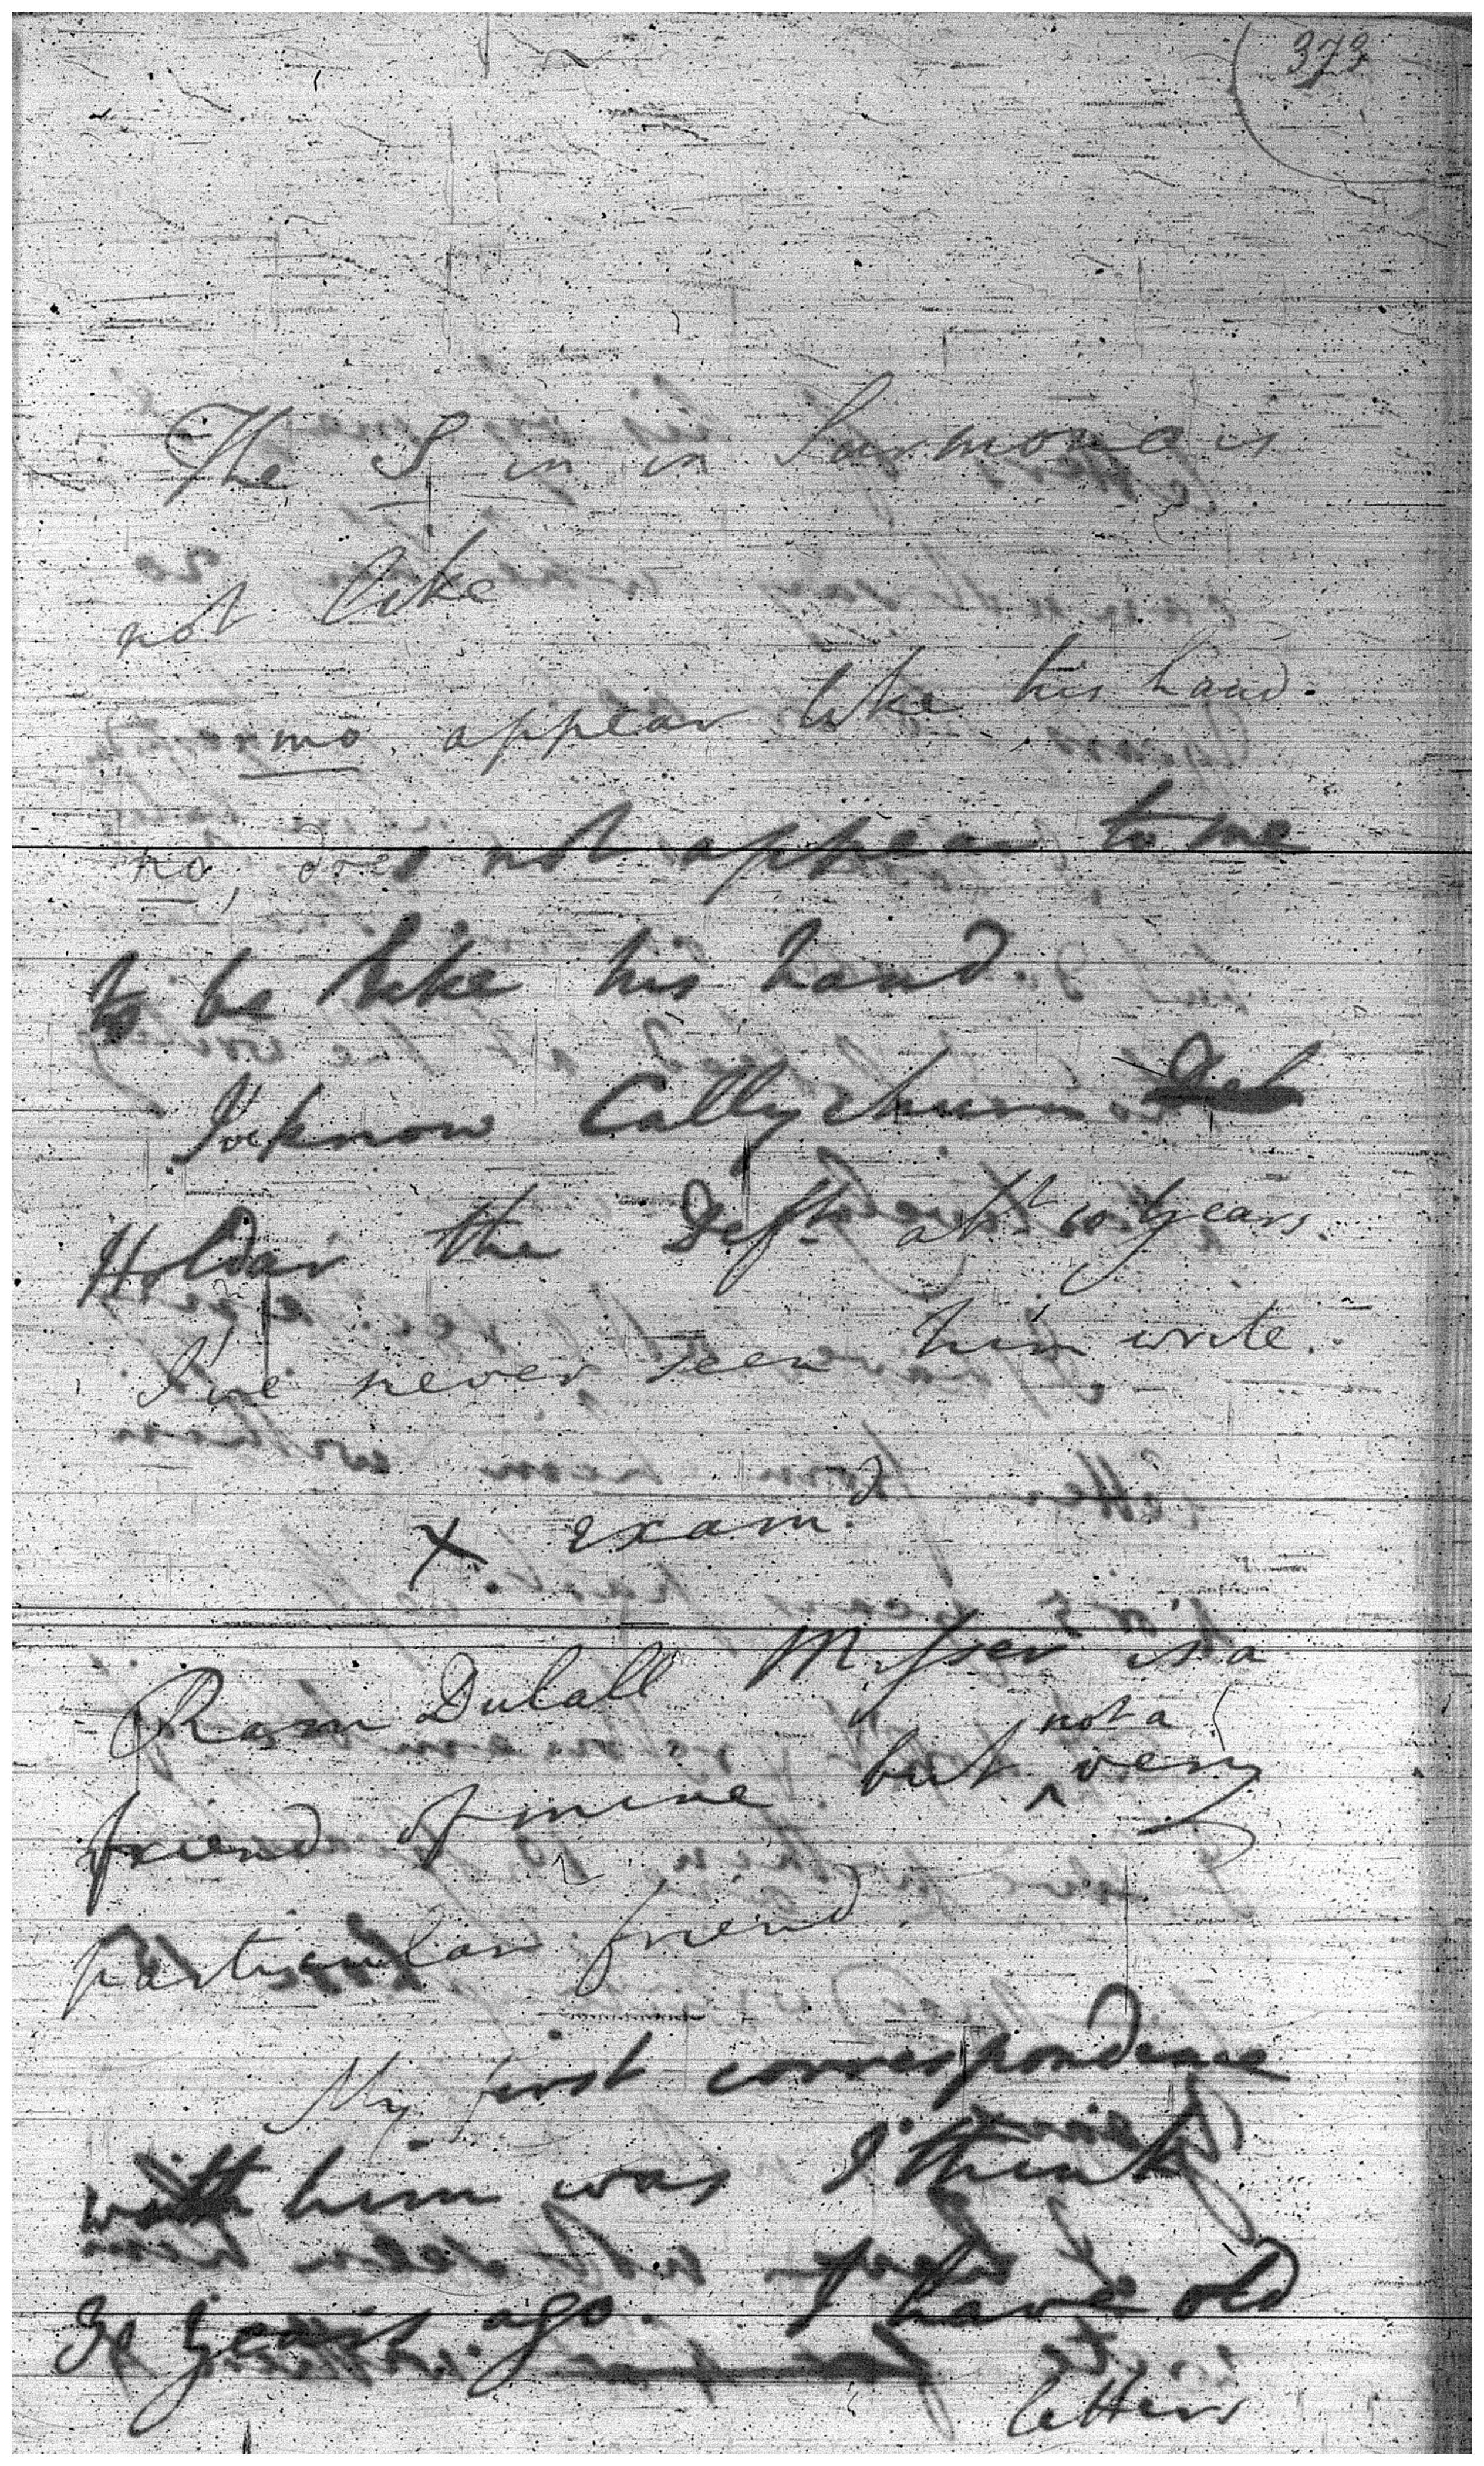 373
The S in in Surmona is
not like
mo appear like his hand.
no, does not appear to me
to be like his hand.
I've know Callychurn
Holdar the Deft. abt 10 years.
I've never seen him write.
x exam.d
Ram Dulall Misser is a
friend of mine but not a very
particular friend.
My first correspondence
with him was I think
years ago. I have old
letters